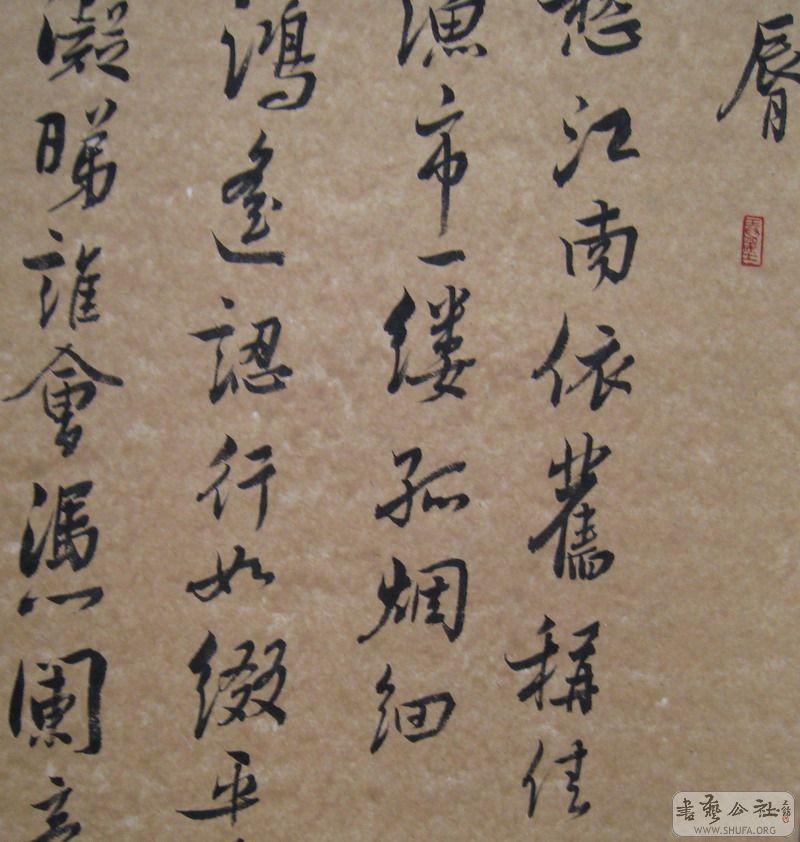 脣
愁江南依舊稱佳
漁市一縷孤烟細
鴻遥認行如綴平
凝睇誰會憑闌意
書藝公社
WWW.SHUFA.ORG